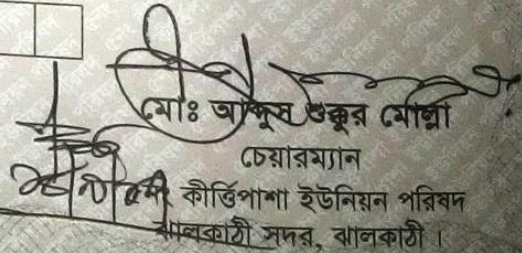 মোঃ আব্দুস শুক্কুর মোল্লা
চেয়ারম্যান
কীর্ত্তিপাশা ইউনিয়ন পরিষদ
ঝালকাঠী সদর, ঝালকাঠী ।